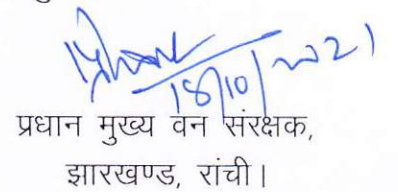 18/10/2021
प्रधान मुख्य वन संरक्षक,
झारखण्ड, रांची।